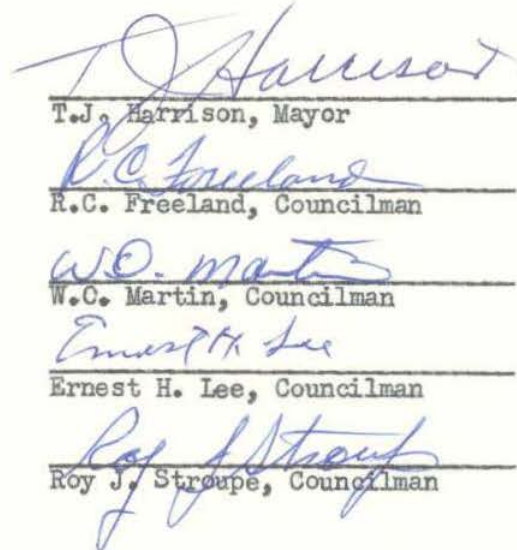 T J Harrison
T.J. Harrison, Mayor
R.C. Freeland
R.C. Freeland, Councilman
W.O. Martin
W.C. Martin, Councilman
Ernest H. Lee
Ernest H. Lee, Councilman
Roy J Stroupe
Roy J. Stroupe, Councilman